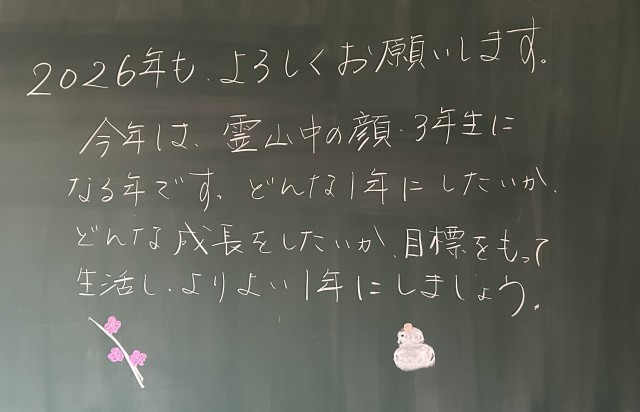 2026年も、よろしくお願いします。
今年は、霊山中の顔、3年生に
なる年です。どんな1年にしたいか、
どんな成長をしたいか、目標をもって
生活し、よりよい1年にしましょう。